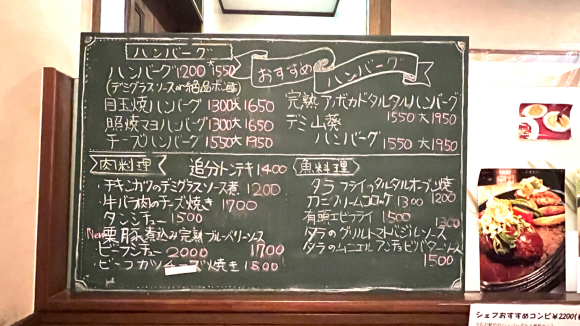 ハンバーグ
ハンバーグ 1200 大1550
(デミグラスソース or 絶品ポン酢)
目玉焼ハンバーグ 1300 大1650
照焼マヨハンバーグ 1300 大1650
チーズハンバーグ 1550 大1950
おすすめ ハンバーグ
完熟アボカドタルタルハンバーグ
1550 大1950
デミ山葵
ハンバーグ 1550 大1950
肉料理 追分トンテキ 1400
・チキンカツのデミグラスソース煮 1200
・牛バラ肉のチーズ焼き 1700
タンシチュー 1500
New 栗豚 煮込み完熟ブルーベリーソース
1700
ビーフシチュー 2000
・ビーフカツチーズ焼き 1500
魚料理
タラフライのタルタルオーブン焼
1200
カニクリームコロッケ 1300
有頭エビフライ 1500
タラのグリルトマトバジルソース 1300
タラのムニエルアンチョビバターソース
1500
シェフおすすめコンビ ¥2200